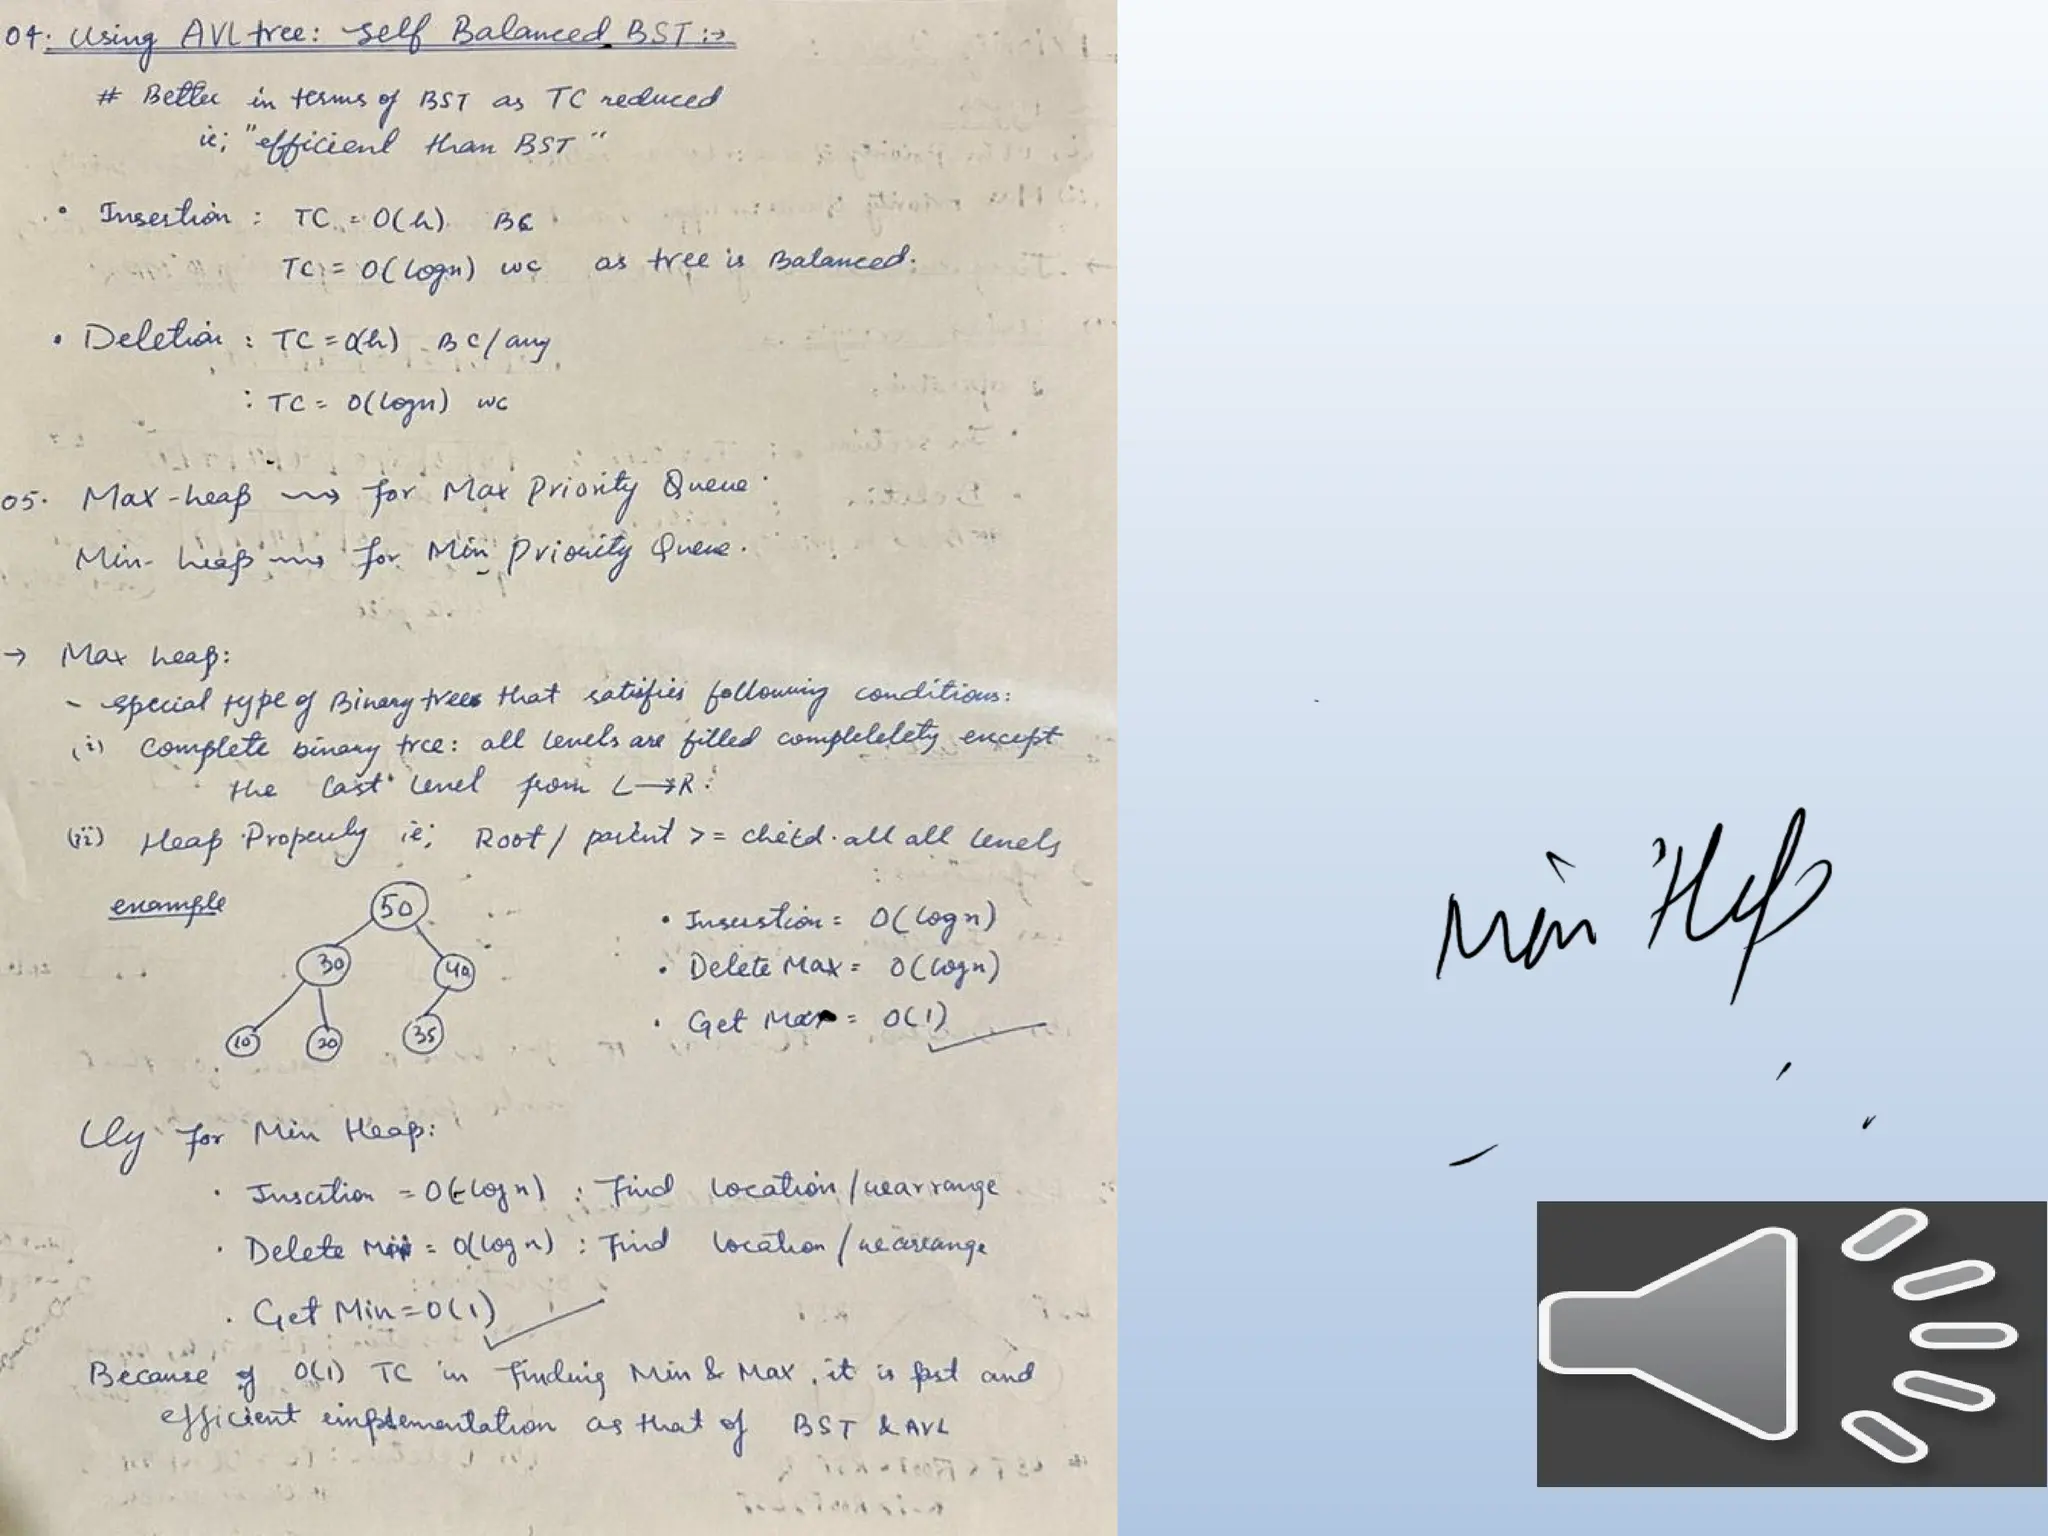 04. Using AVL tree: Self Balanced BST:→
# Better in terms of BST as TC reduced
ie; "efficient than BST"
• Insertion : TC = O(h) BC
TC = O(logn) WC as tree is Balanced.
• Deletion : TC = O(h) BC/avg
: TC = O(logn) WC
05. Max-heap ⟿ for Max Priority Queue.
Min-heap ⟿ for Min Priority Queue.
→ Max heap:
- special type of Binary trees that satisfies following conditions:
(i) Complete binary tree: all levels are filled complelelety except
the last level from L→R.
(ii) Heap Property ie; Root/parent >= child all all levels
example
50
30 40
10 20 35
• Insertion = O(logn)
• Delete Max = O(logn)
• Get Max = O(1)
lly for Min Heap:
• Insertion = O(logn) : Find location/rearrange
• Delete Min = O(logn) : Find location/rearrange
• Get Min = O(1)
Because of O(1) TC in finding Min & Max, it is fast and
efficient implementation as that of BST & AVL
Min Hep